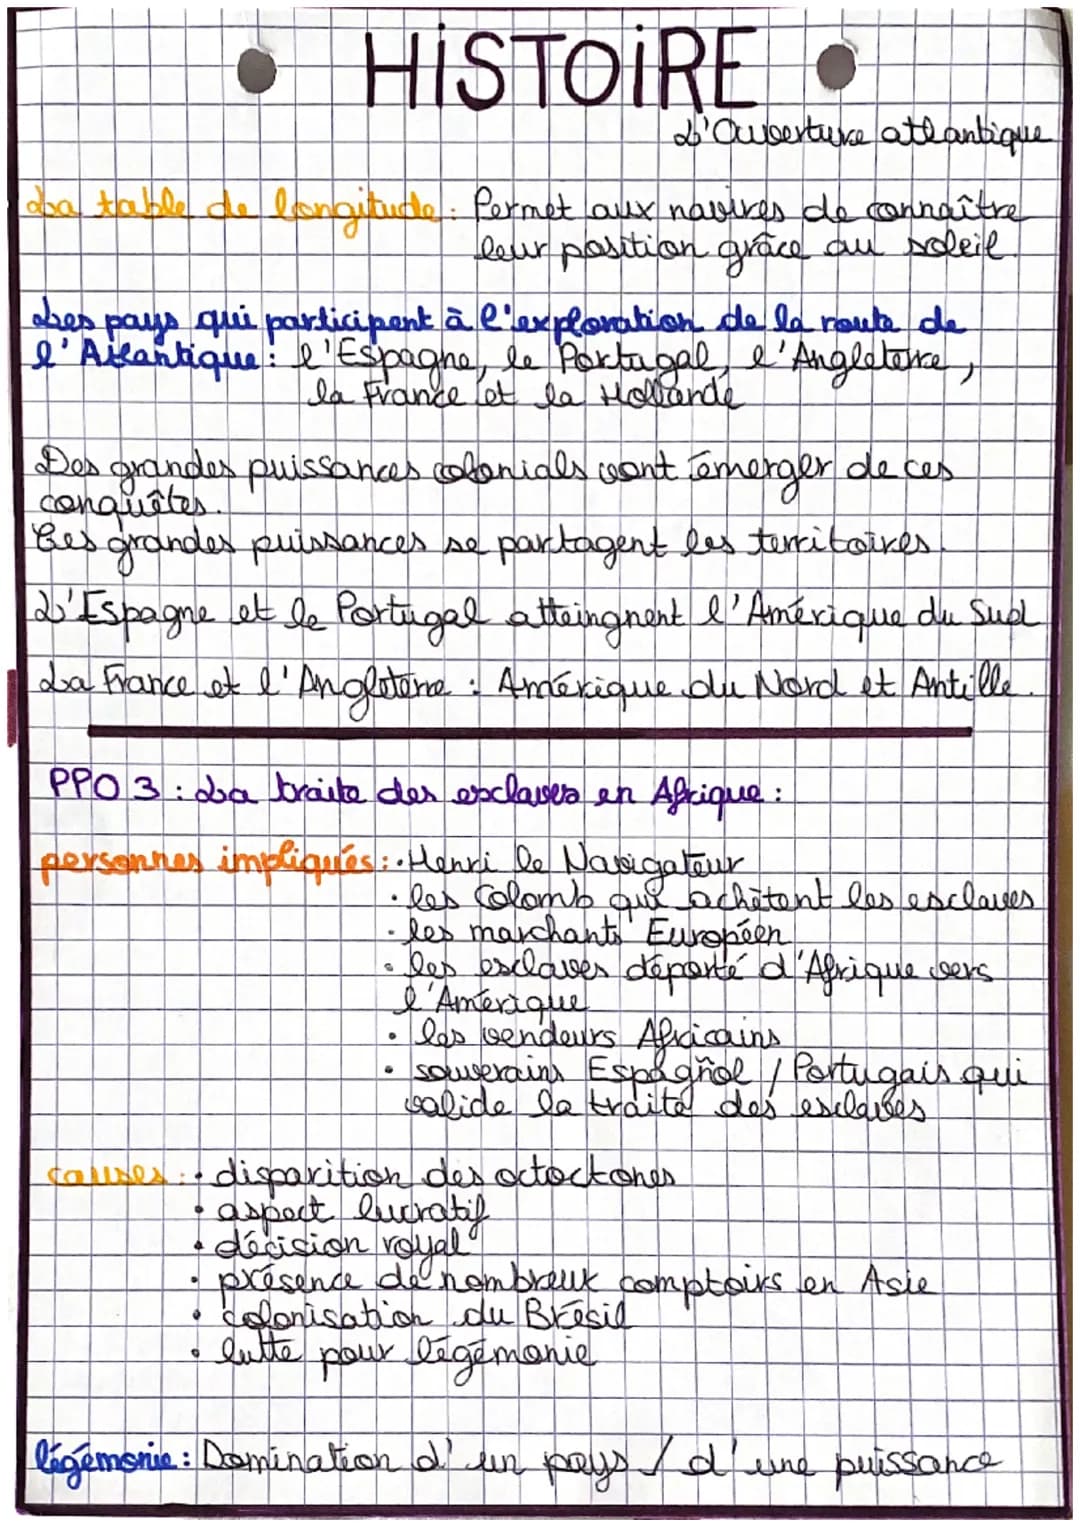 HiSTOiRE
L'Ouverture atlantique
La table de longitude : Permet aux navires de connaître
leur position grâce au soleil.
Les pays qui participent à l'exploration de la route de
l'Atlantique : l'Espagne, le Portugal, l'Angleterre,
la France et la Hollande
Des grandes puissances colonials vont émerger de ces
conquêtes.
Ces grandes puissances se partagent les territoires.
L'Espagne et le Portugal atteingnent l'Amérique du Sud
La France et l'Angleterre : Amérique du Nord et Antille.
PPO 3 : La traite des esclaves en Afrique :
personnes impliqués : · Henri le Navigateur
· les Colomb qui achètent les esclaves
· les marchants Européen
· les esclaves déporté d'Afrique vers
l'Amérique
· les vendeurs Africains
· souverains Espagñol / Portugais qui
valide la traite des esclaves
causes : · disparition des octoctones
· aspect lucratif
· décision royal
· présence de nombreux comptoirs en Asie
· colonisation du Brésil
· lutte pour légémonie
légémonie : Domination d'un pays / d'une puissance